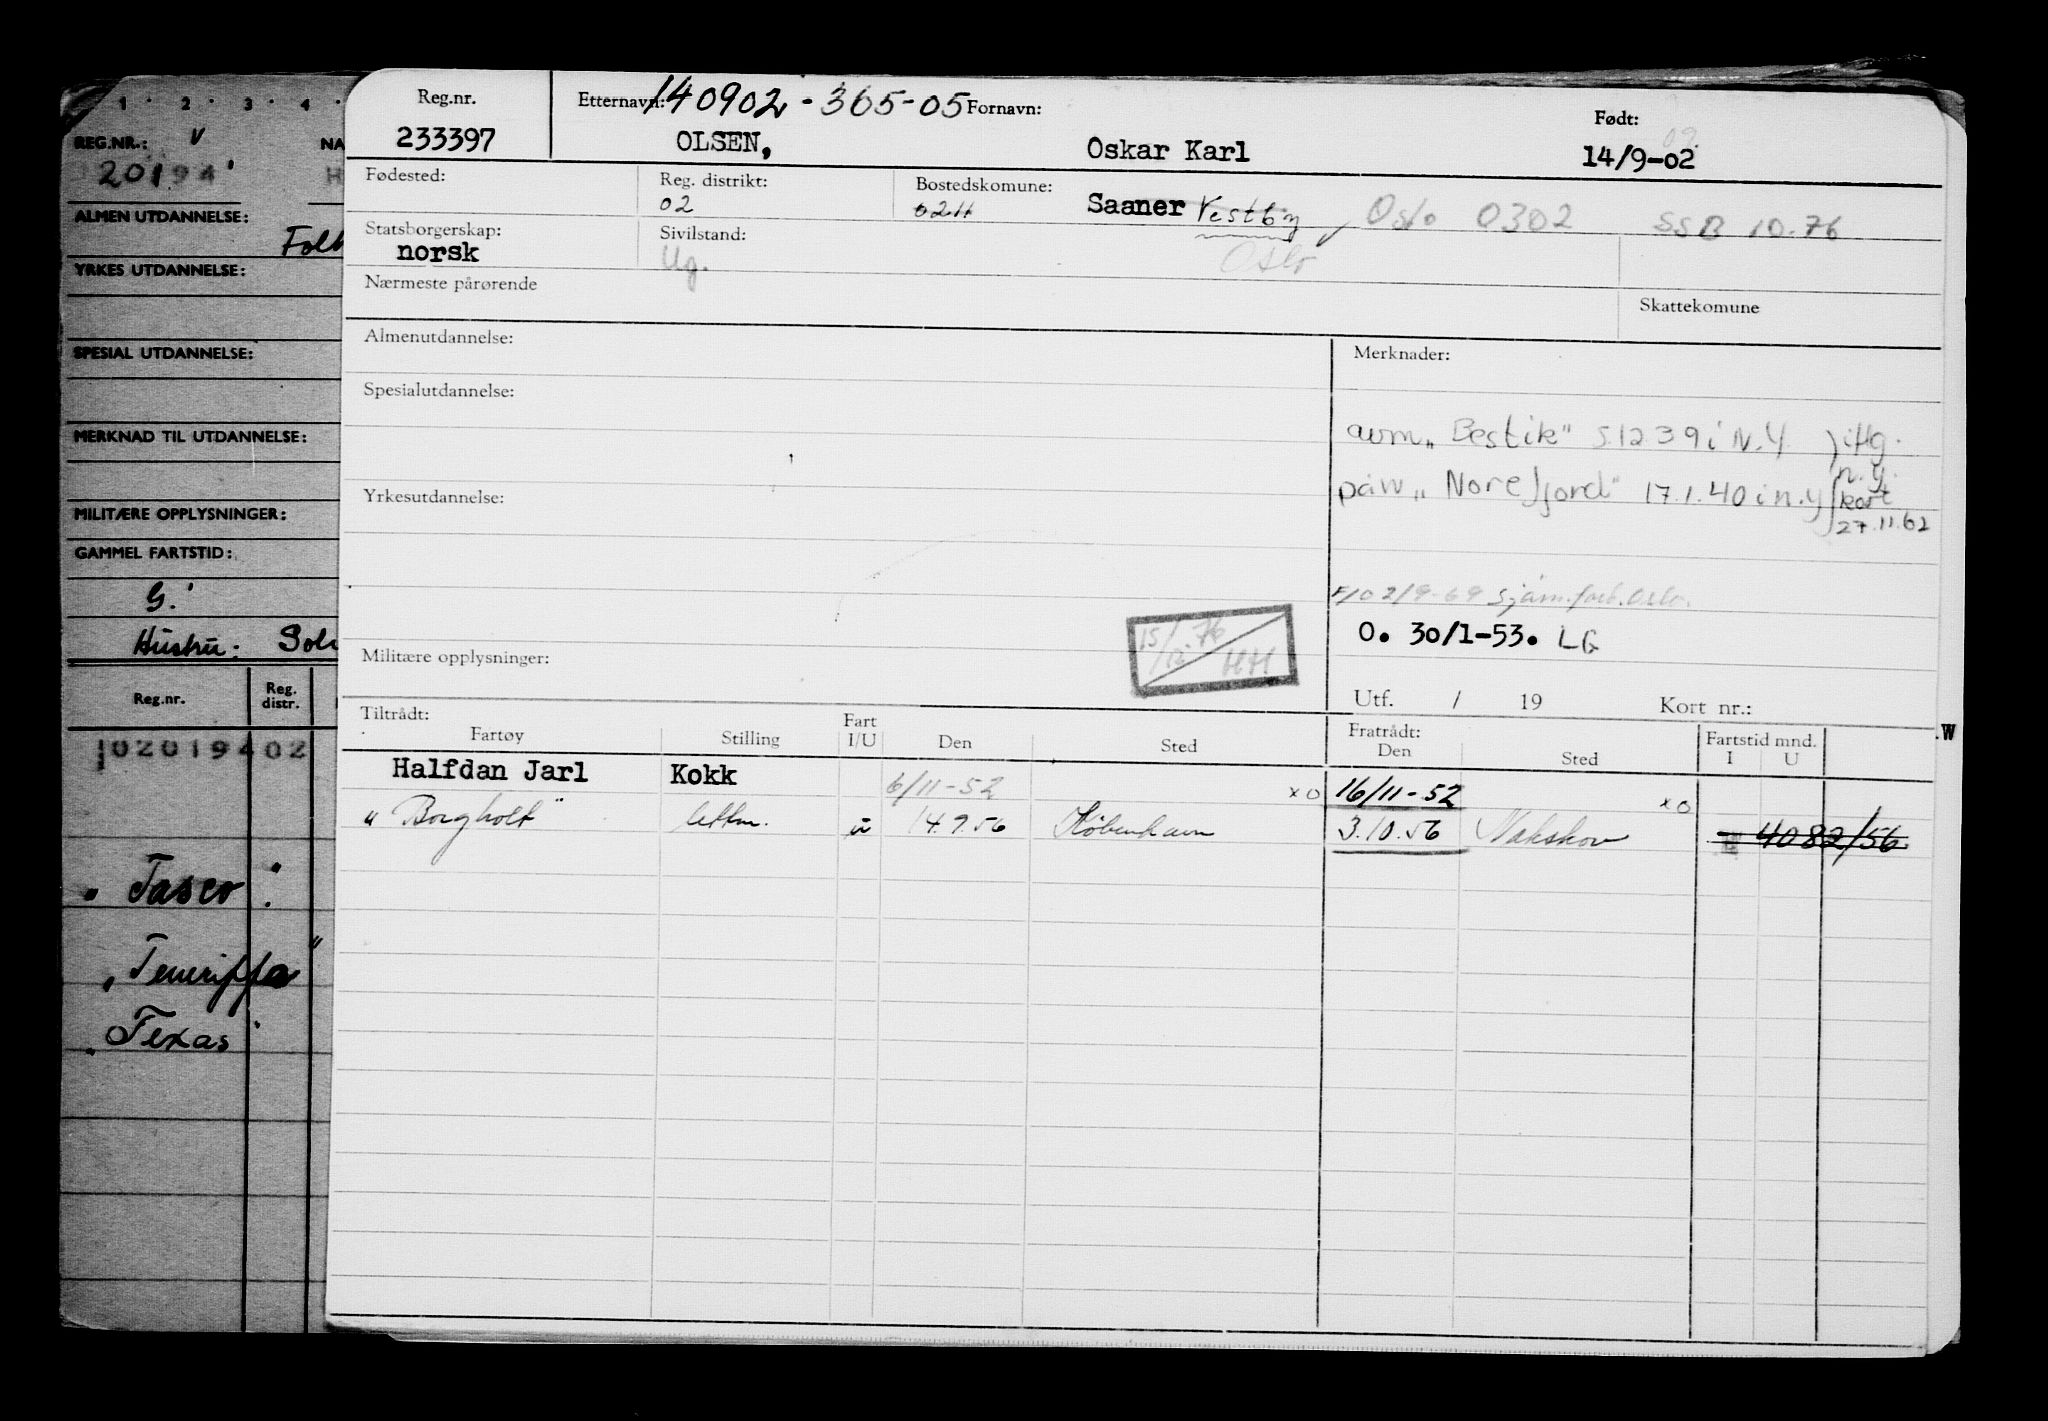 1 · 2 · 3 · 4 ·
REG.NR.: v NA
20194' H
ALMEN UTDANNELSE:
Folk
YRKES UTDANNELSE:
SPESIAL UTDANNELSE:
MERKNAD TIL UTDANNELSE:
MILITÆRE OPPLYSNINGER:
GAMMEL FARTSTID:
G.'
Hustru: Sol
Reg.nr. Reg. distr.
102019402
" Tasco "
" Teneriffa "
" Texas "
Reg.nr. Etternavn: 140902-365-05 Fornavn: Født:
233397 OLSEN, Oskar Karl 14/9-02
Fødested: Reg. distrikt: Bostedskomune:
02 02H Saaner Vestby Oslo 0302 SSB 10.76
Statsborgerskap: Sivilstand:
norsk Ug. Oslo
Nærmeste pårørende
Skattekomune
Almenutdannelse: Merknader:
Spesialutdannelse:
avm „Bestik" 5.12 39 i N.Y. ) iflg.
n.y.
påm „Norefjord" 17.1.40 i n.y kort
27.11.62
Yrkesutdannelse:
2/9-69 sjøm.forb. Oslo.
O. 30/1-53. LG
15/12.76 HH
Militære opplysninger:
Utf. / 19 Kort nr.:
Tiltrådt: Fratrådt: Fartstid mnd. W
Fartøy Stilling Fart I/U Den Sted Den Sted I U
Halfdan Jarl Kokk 6/11-52 xo 16/11-52 xo
" Borgholt " lettm. u 14.9.56 København 3.10.56 Nakskov 4082/56